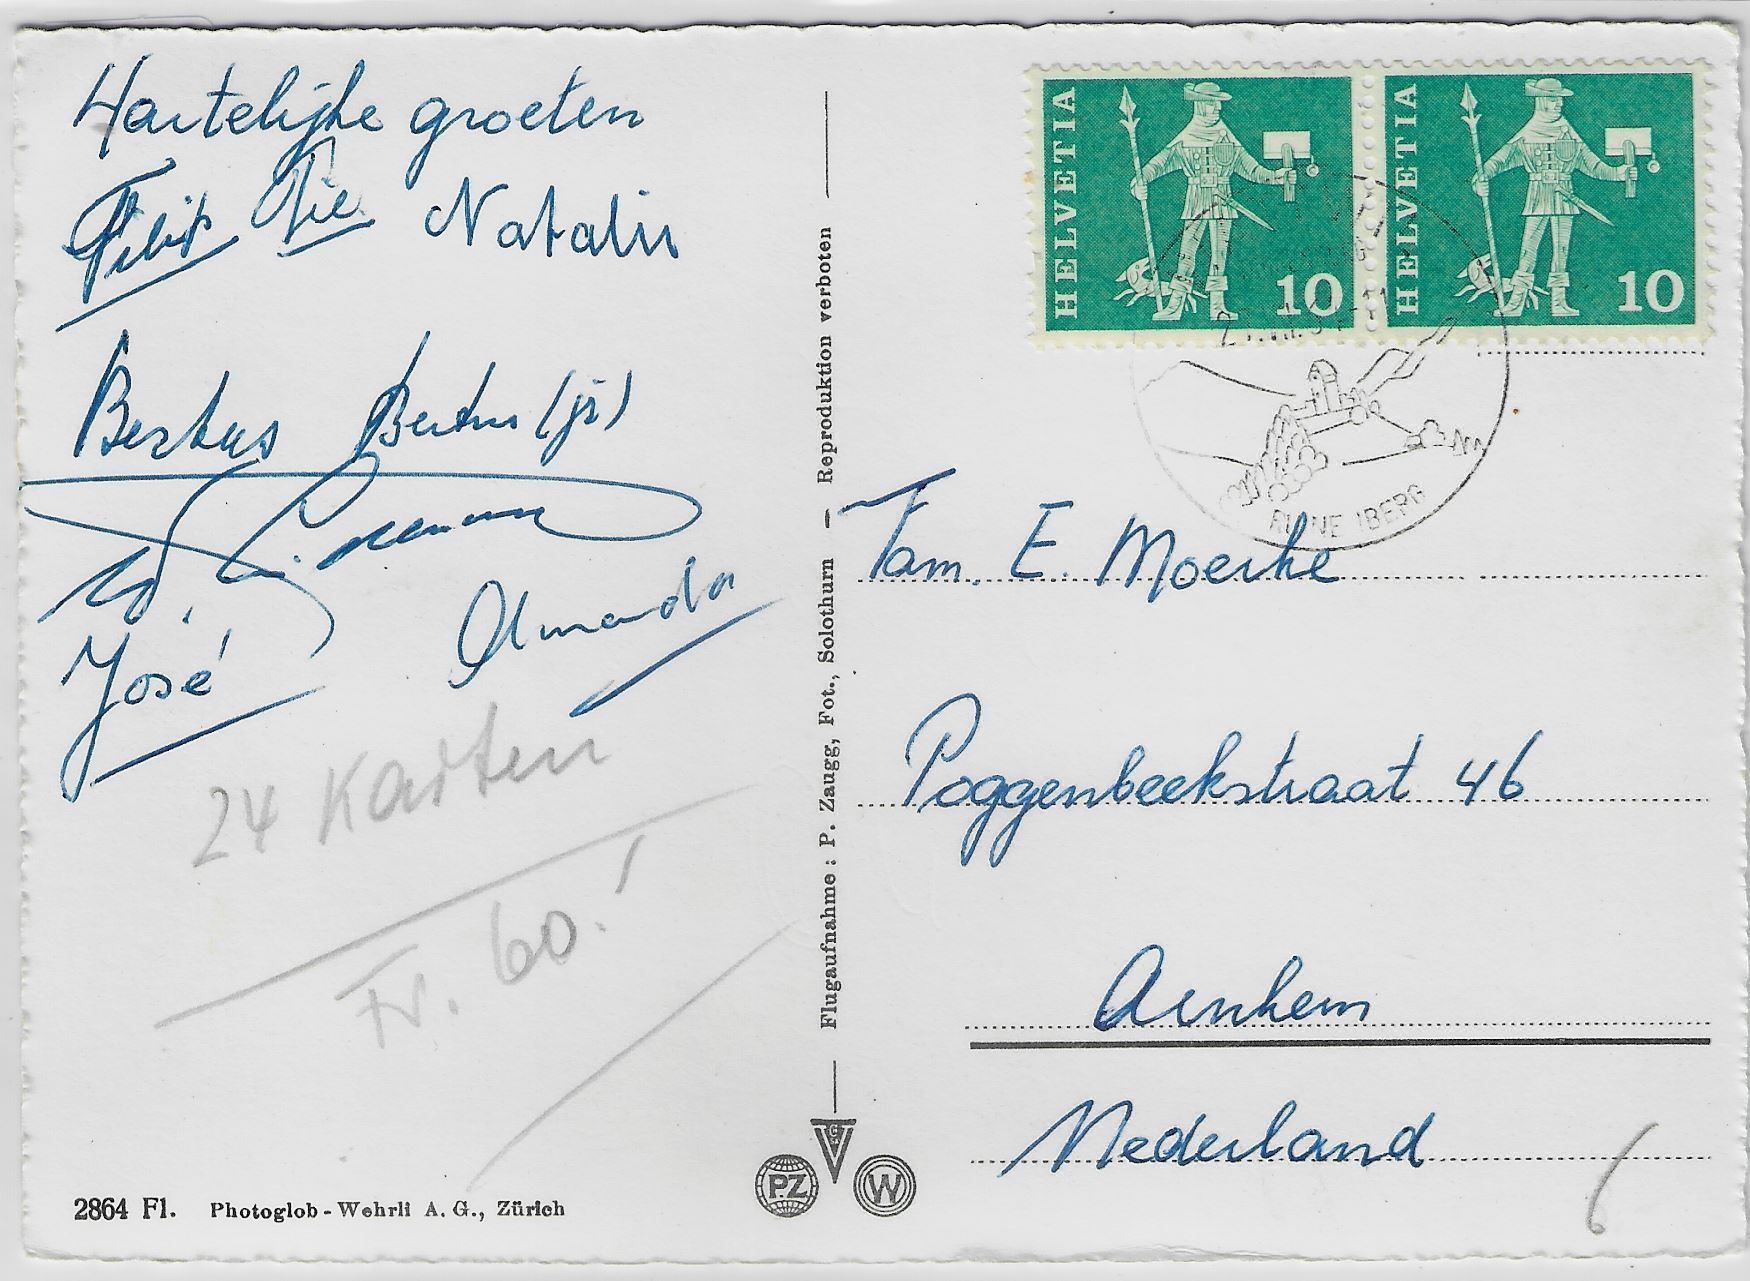 Hartelijke groeten
Filip Nie Natalie
Bertus Bertus (jr)
José Amanda
24 Karten
Fr. 60.!
2864 Fl. Photoglob-Wehrli A. G., Zürich
Flugaufnahme : P. Zaugg, Fot., Solothurn — Reproduktion verboten
G
PZ
W
HELVETIA 10
HELVETIA 10
IBERG
Fam. E. Moerke
Poggenbeekstraat 46
Arnhem
Nederland
6